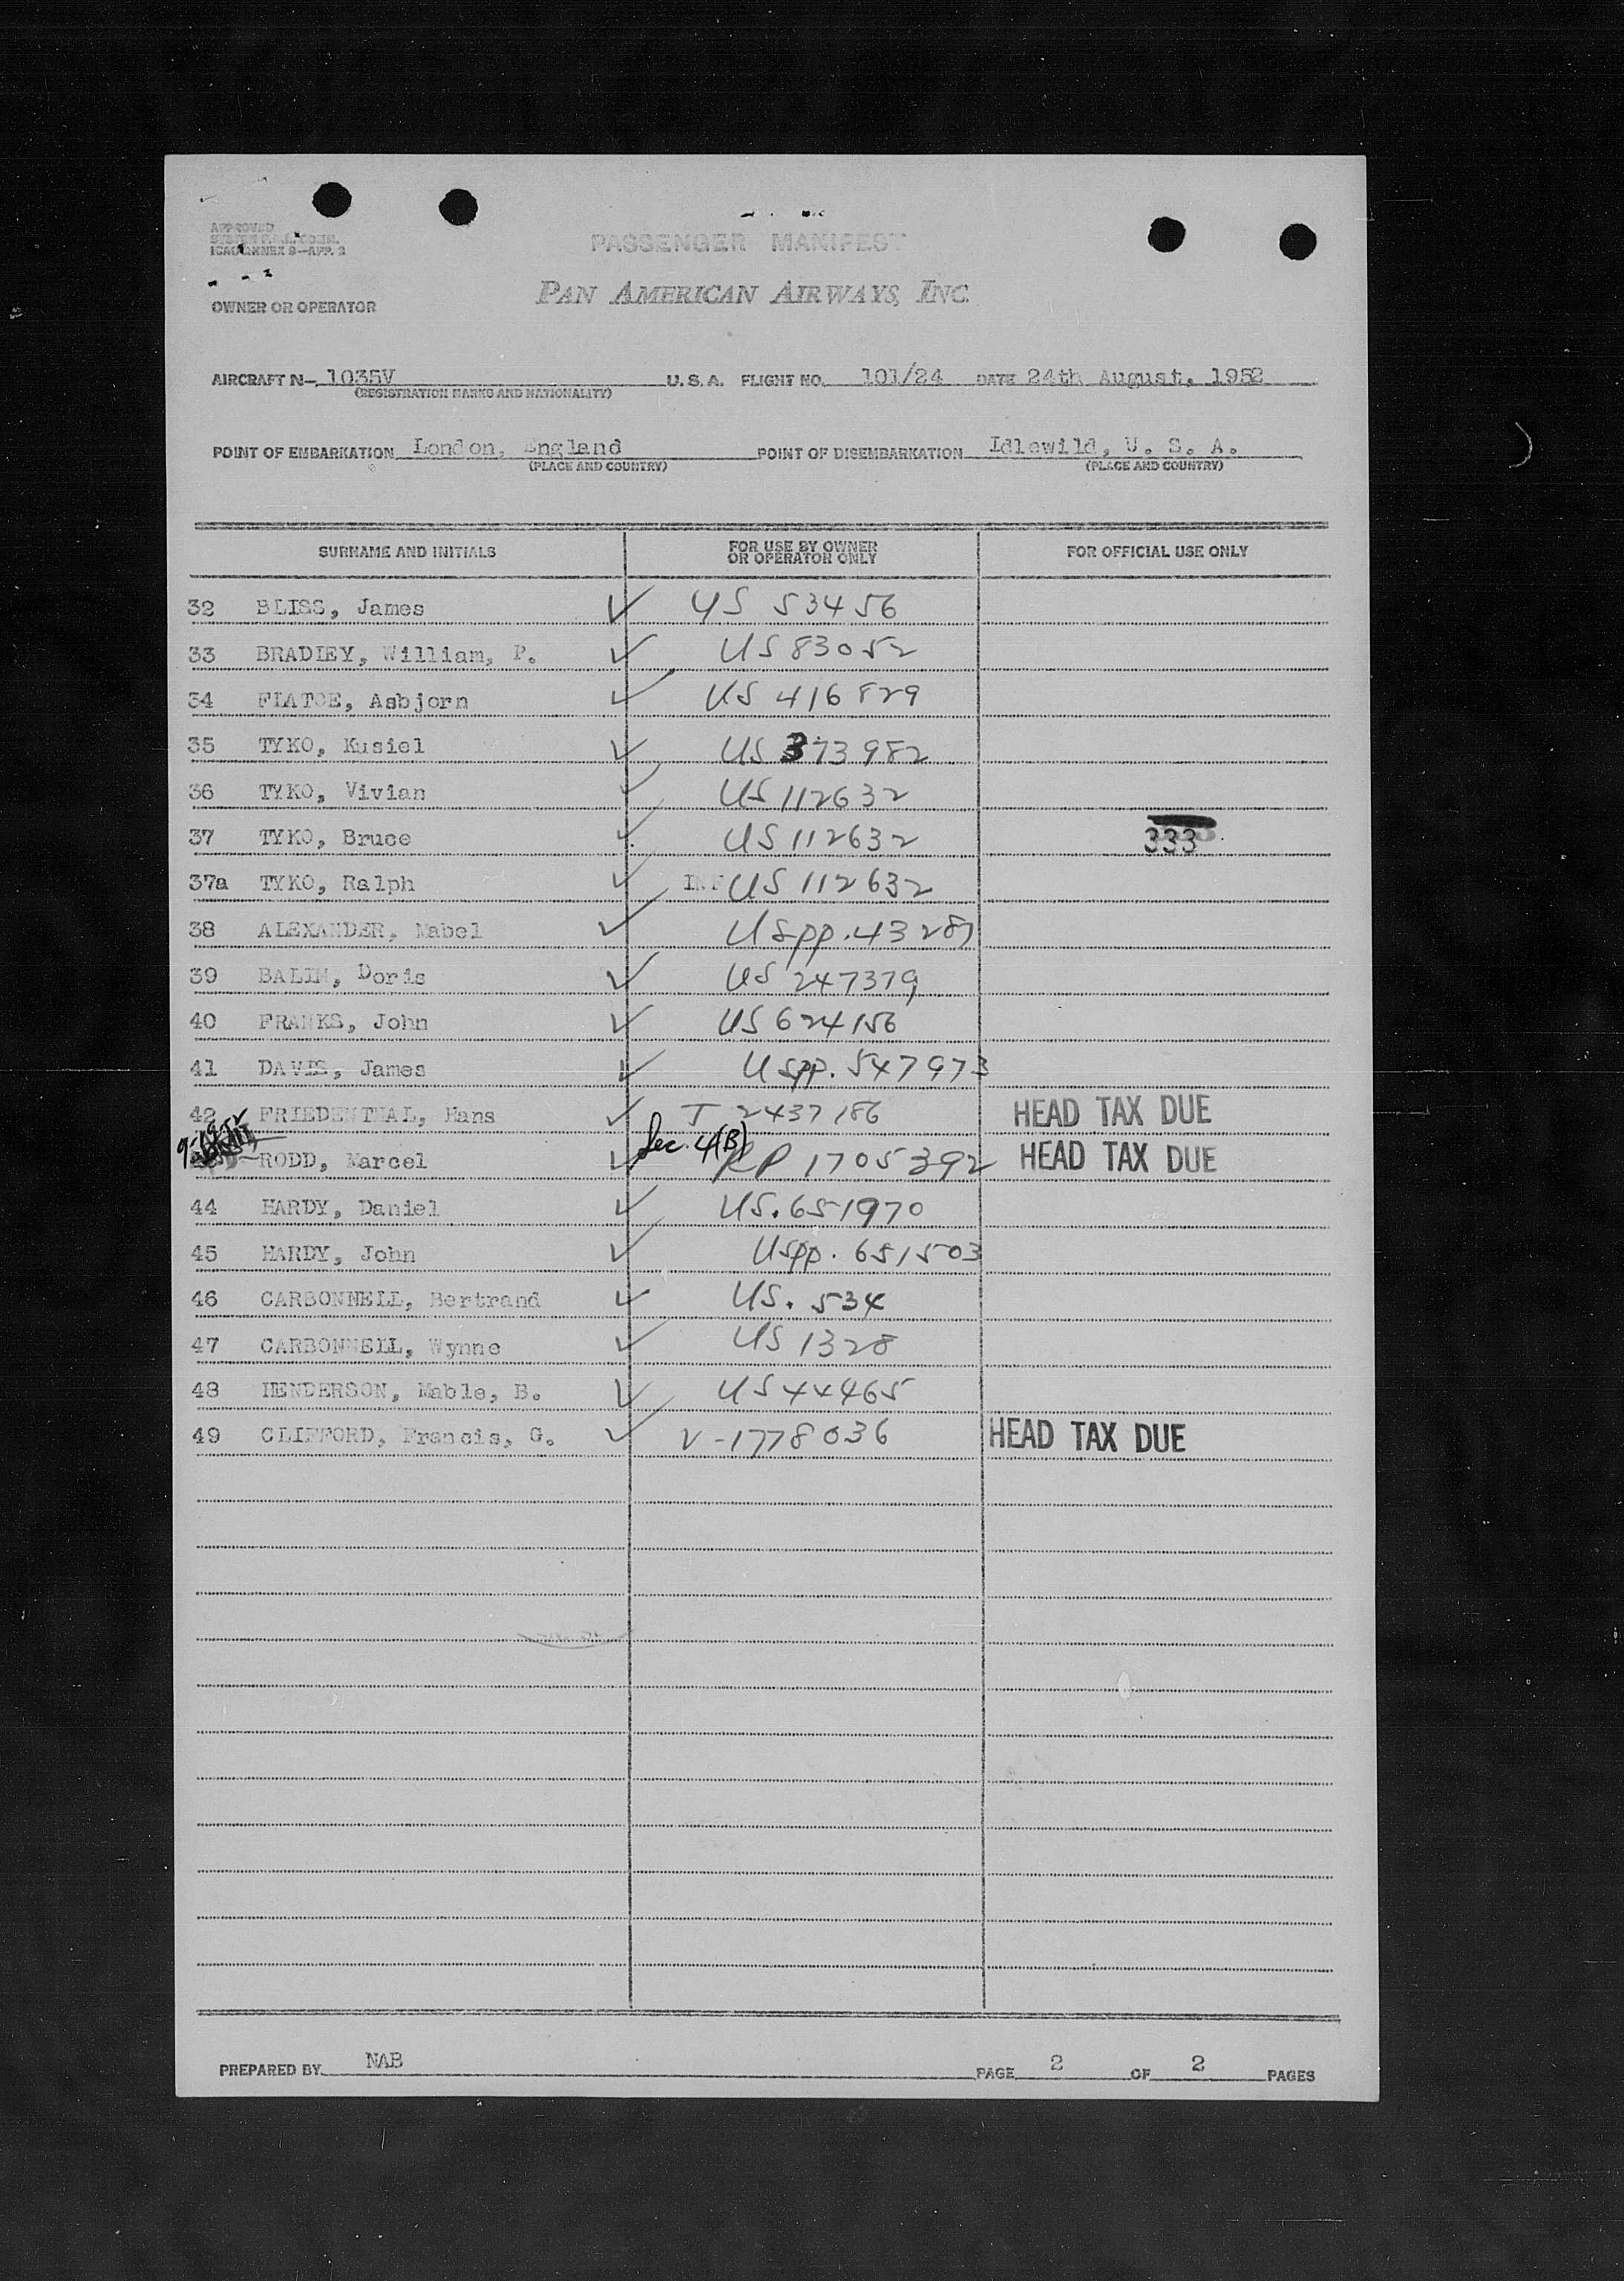 APPROVED
ICAO ANNEX 9—APP. 3
PASSENGER MANIFEST
PAN AMERICAN AIRWAYS, INC.
OWNER OR OPERATOR
AIRCRAFT N— 1035V U. S. A. FLIGHT NO. 101/24 DATE 24th August, 1952
(REGISTRATION MARKS AND NATIONALITY)
POINT OF EMBARKATION London, England POINT OF DISEMBARKATION Idlewild, U. S. A.
(PLACE AND COUNTRY) (PLACE AND COUNTRY)
SURNAME AND INITIALS FOR USE BY OWNER OR OPERATOR ONLY FOR OFFICIAL USE ONLY
32 BLISS, James ✓ US 53456
33 BRADLEY, William, P. ✓ US 83052
34 FLATOE, Asbjorn ✓ US 416829
35 TYKO, Kusiel ✓ US 373982
36 TYKO, Vivian ✓ US 112632
37 TYKO, Bruce ✓ US 112632 333
37a TYKO, Ralph ✓ INF US 112632
38 ALEXANDER, Mabel ✓ USpp. 43287
39 BALIN, Doris ✓ US 247379
40 FRANKS, John ✓ US 624156
41 DAVIS, James ✓ USpp. 547973
42 FRIEDENTHAL, Hans ✓ T 2437186 HEAD TAX DUE
Sec. 4(B)
RODD, Marcel ✓ RP 1705392 HEAD TAX DUE
44 HARDY, Daniel ✓ US. 651970
45 HARDY, John ✓ USpp. 651503
46 CARBONNELL, Bertrand ✓ US. 534
47 CARBONNELL, Wynne ✓ US 1328
48 HENDERSON, Mable, B. ✓ US 44465
49 CLIFFORD, Francis, G. ✓ V-1778036 HEAD TAX DUE
PREPARED BY NAB PAGE 2 OF 2 PAGES